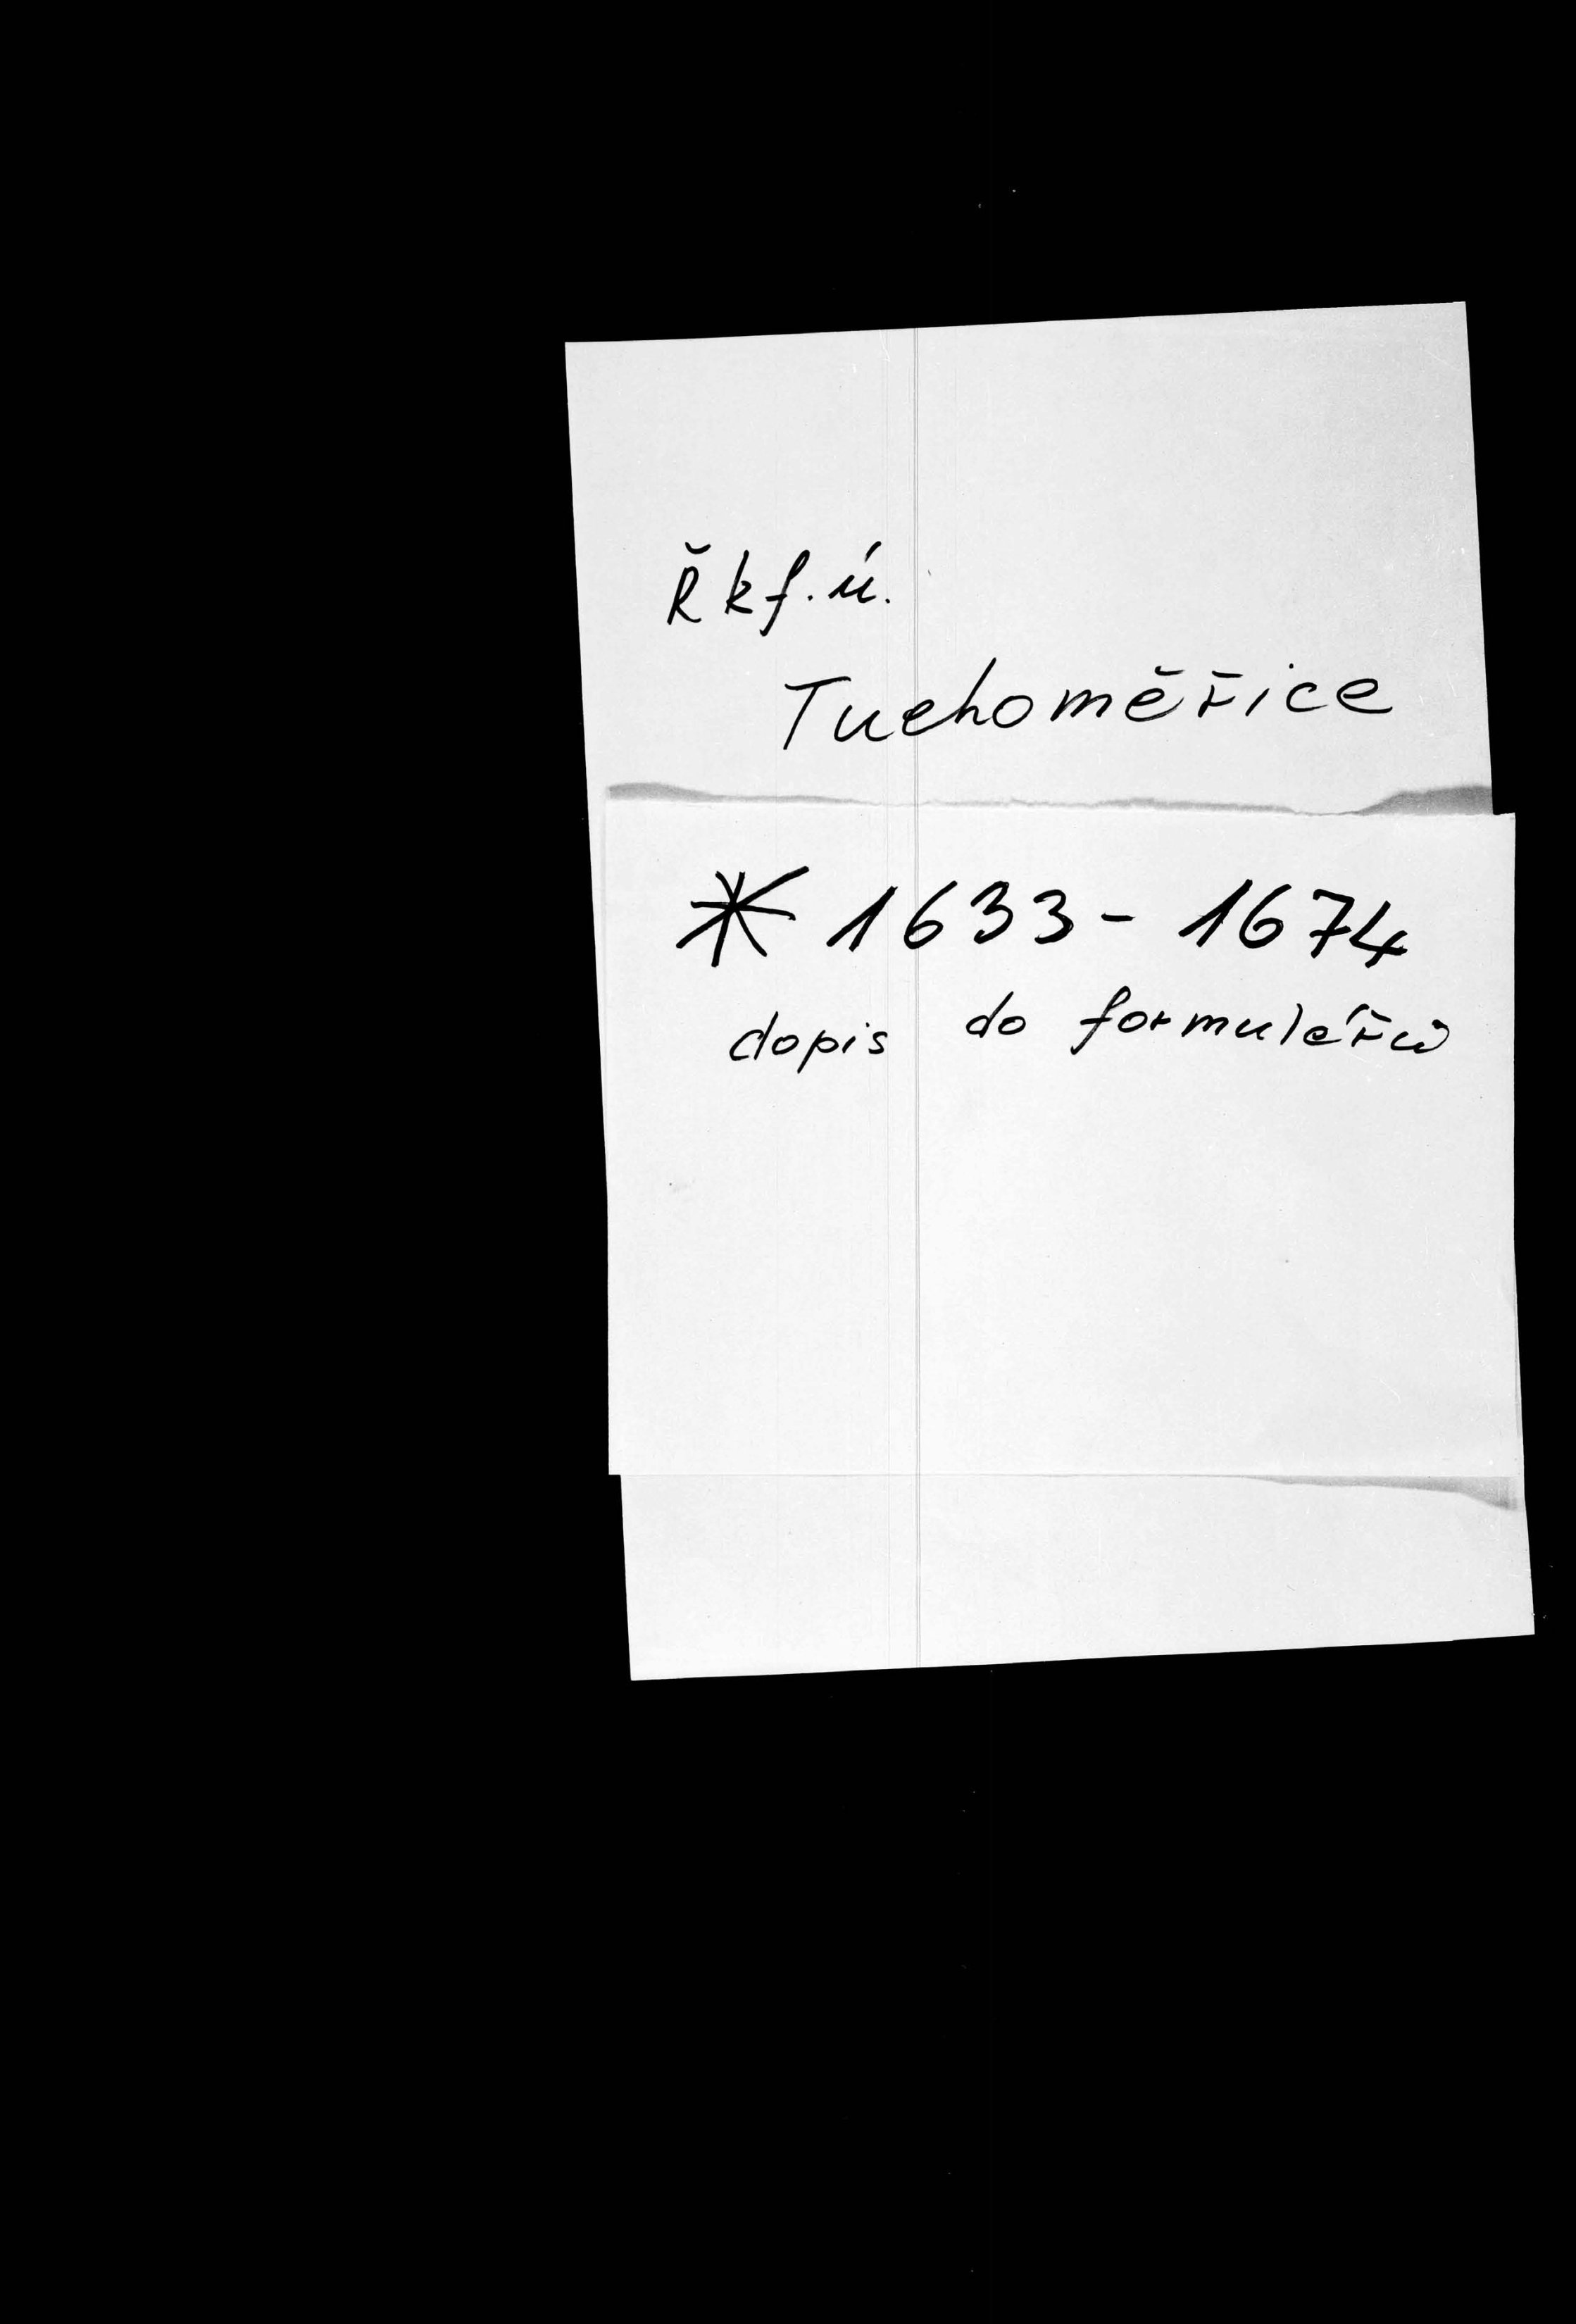 Řkf. ú.
Tuchoměřice
* 1633 - 1674
dopis do formulářů